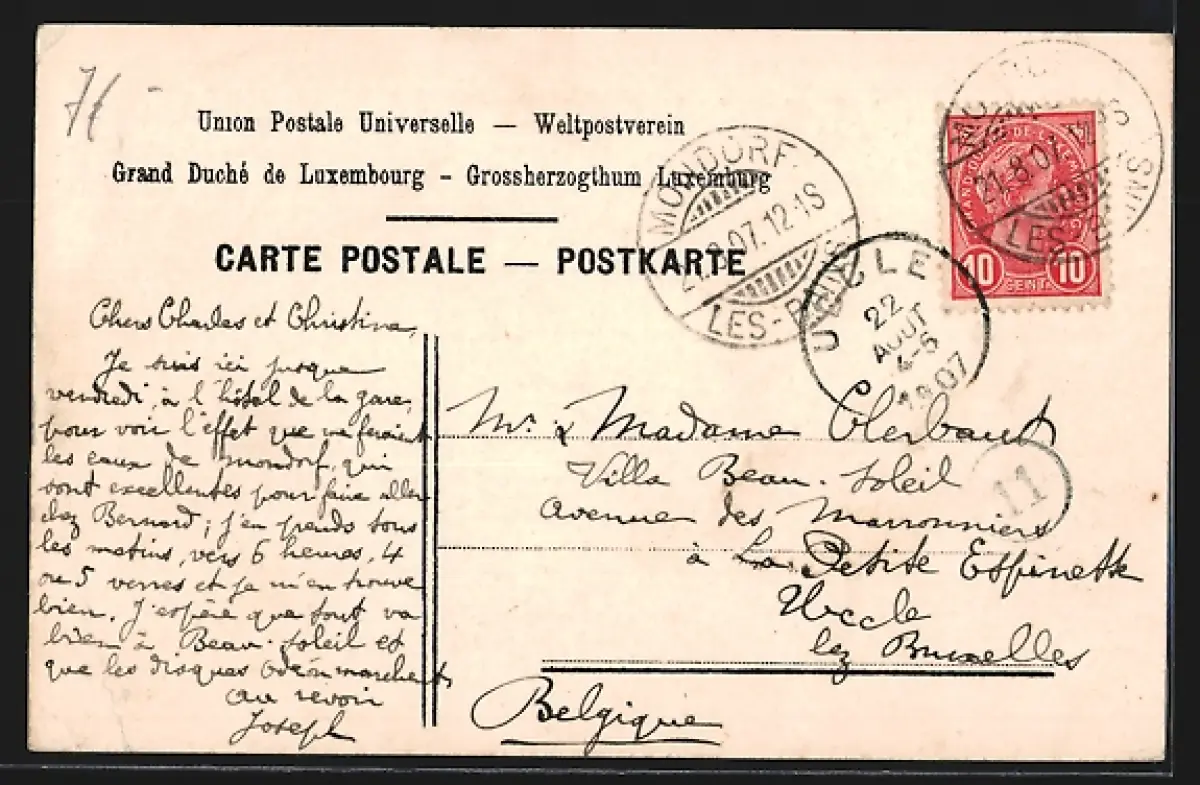 7f -
Union Postale Universelle — Weltpostverein
Grand Duché de Luxembourg - Grossherzogthum Luxemburg
CARTE POSTALE — POSTKARTE
MONDORF
21.8.07.12-1S
LES-BAINS
MONDORF
21.8.07.
LES-BAINS
GRAND DUCHÉ DE LUXEMBOURG
10 CENT. 10
UCCLE
22
AOUT
4-5
1907
11
Chers Charles et Christine,
Je suis ici jusque
vendredi, à l'hôtel de la gare,
pour voir l'effet que me feraient
les eaux de Mondorf, qui
sont excellentes pour faire aller
chez Bernard; j'en prends tous
les matins, vers 6 heures, 4
ou 5 verres et je m'en trouve
bien. J'espère que tout va
bien à Beau-Soleil et
que les disques Odéon marchent
au revoir
Joseph
Mr. & Madame Clerbaut
Villa Beau-Soleil
Avenue des Marronniers
à La Petite Espinette
Uccle
lez Bruxelles
Belgique